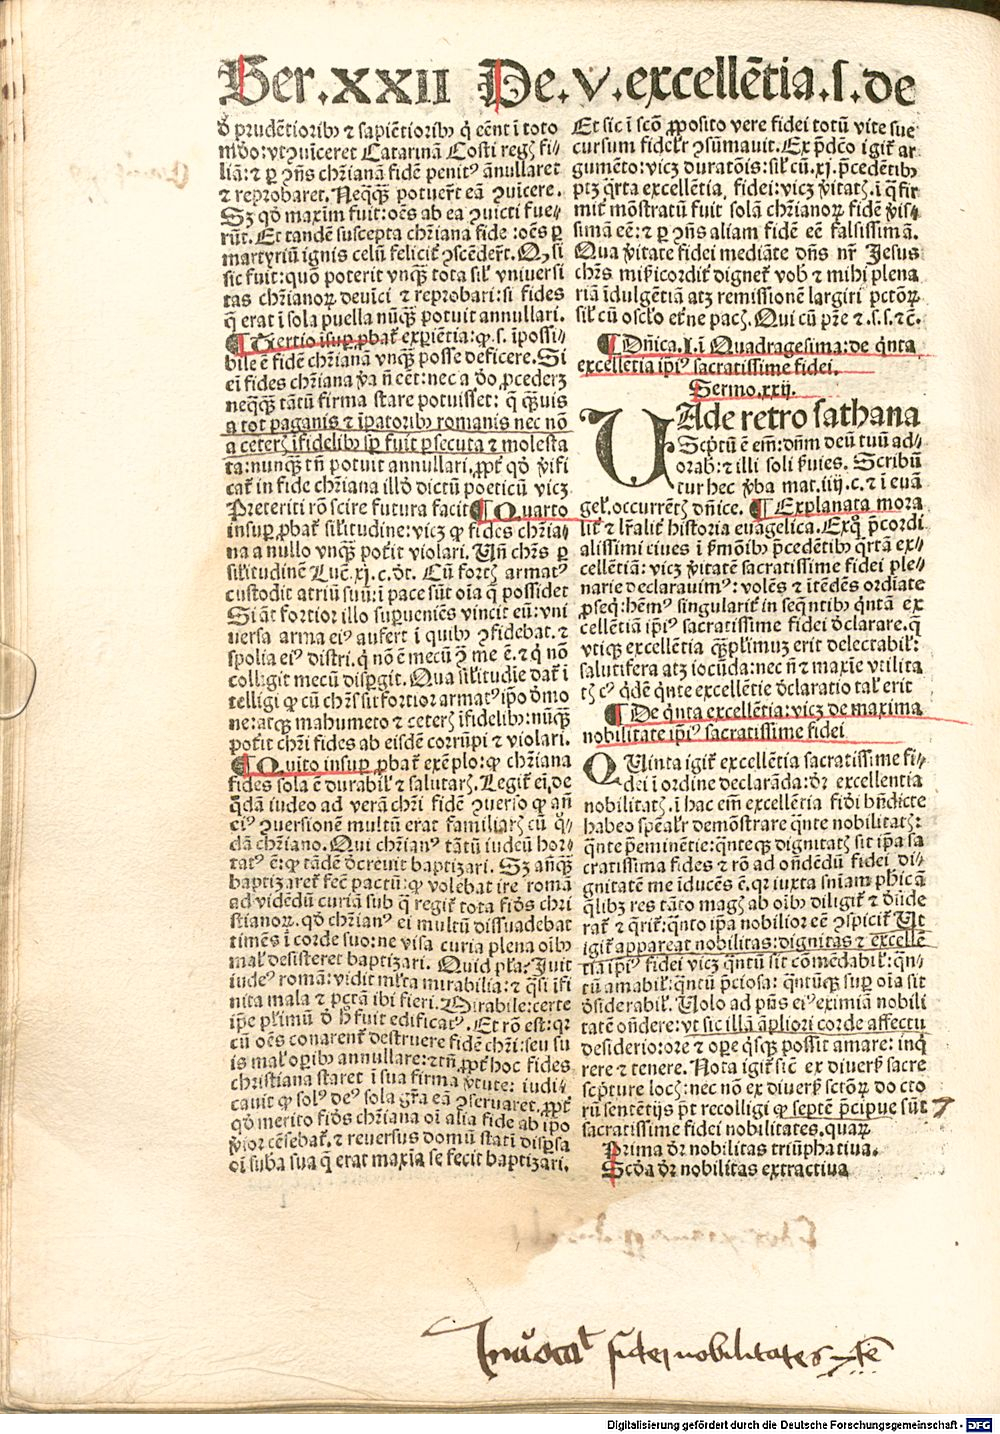 Ser.XXII De.V.excellētia.s.de
ď prudētioribꝰ ⁊ sapiētioribꝰ q̇ eēnt ī toto
mūdo: vt ꝯuīceret Catarinā Costi regꝭ fi-
liā: ⁊ ꝑ ꝯñs chr̄ianā fidē penitꝰ ānullaret
⁊ reprobaret. Neqꝗꝫ potuert̄ eā ꝯuīcere.
Sꝫ qḋ maxīm fuit: oēs ab ea ꝯuicti fue-
rūt. Et tandē suscepta chr̄iana fide: oēs ꝑ
martyriū ignis celū felicit̄ ꝯscēdert̄. Q, si
sic fuit: quō poterit vnꝗꝫ tota sil̄ vniuersi
tas chr̄ianoꝝ deuīci ⁊ reprobari: si fides
q̄ erat ī sola puella nūꝗꝫ potuit annullari.
¶ Tertio īsuꝑ ꝓbat̄ exꝑiētia: ꝙ.s. īpossi-
bile ē fidē chr̄ianā vnꝗꝫ posse deficere. Si
ei fides chr̄iana v̄a ñ eēt: nec a ḋo ꝓcederꝫ
neqꝗꝫ tātū firma stare potuisset: q̄ ꝗꝫuis
a tot paganis ⁊ īpatoribꝰ romanis nec nō
a ceterꝭ īfidelibꝰ sꝑ fuit ꝑsecuta ⁊ molesta
ta: nunꝗꝫ tñ potuit annullari, ꝓpt̄ qḋ v̄ifi
cat̄ in fide chr̄iana illḋ dictū poeticū vicꝫ
Preteriti rō scire futura facit ¶ Quarto
insuꝑ ꝓbat̄ sil̄itudine: vicꝫ ꝙ fides chr̄ia-
na a nullo vnꝗꝫ pot̄it violari. Vñ chr̄s ꝑ
sil̄itudinē Luc̄.xj.c.dt̄. Cū fortꝭ armatꝰ
custodit atriū suū: ī pace sūt oīa q̄ possidet
Si āt fortior illo suꝑueniēs vincit eū: vni
uersa arma eiꝰ aufert ī quibꝰ ꝯfidebat. ⁊
spolia eiꝰ distri. q̇ nō ē mecū ꝯ̄ me ē. ⁊ q̇ nō
colligit mecū disꝑgit. Qua sil̄itudīe dat̄ ī
telligi ꝙ cū chr̄s sit fortior armatꝰ ip̄o ḋmo
ne: atqꝫ mahumeto ⁊ ceterꝭ īfidelibꝰ: nūꝗꝫ
pot̄it chr̄i fides ab eisdē corrūpi ⁊ violari.
¶ Quīto insuꝑ ꝓbat̄ exēplo: ꝙ chr̄iana
fides sola ē durabil̄ ⁊ salutarꝭ. Legit̄ ei, de
q̇dā iudeo ad verā chr̄i fidē ꝯuerso ꝙ añ
eiꝰ ꝯuersionē multū erat familiarꝭ cū q̇-
dā chr̄iano. Qui chr̄ianꝰ tātū iudeū hor-
tatꝰ ē: ꝙ tādē ḋcreuit baptizari. Sꝫ añꝗꝫ
baptizaret̄ fec̄ pactū: ꝙ volebat ire romā
ad vidēdū curiā sub q̄ regit̄ tota fiḋs chri
stianoꝝ. qḋ chr̄ianꝰ ei multū dissuadebat
timēs ī corde suo: ne visa curia plena oībꝰ
mal̄ desisteret baptizari. Quid pl̄a? Juit
iudeꝰ romā: vidit ml̄ta mirabilia: ⁊ q̄si īfi
nita mala ⁊ pctā ibi fieri. Mirabile: certe
ip̄e pͥmū ḋ h̄ fuit edificatꝰ. Et rō est: qꝛ
cū oēs conarent̄ destruere fidē chr̄i: seu su
is mal̄ oꝑibꝰ annullare: ⁊ tñ ꝓpt̄ hoc fides
christiana staret ī sua firma v̄tute: iudi-
cauit ꝙ solꝰ deꝰ sola gr̄a eā ꝯseruaret. ꝓpt̄
qḋ merito fiḋs chr̄iana oī alia fide ab ip̄o
v̄ior cēsebat̄. ⁊ reuersus domū statī disp̄sa
oī suba sua q̄ erat maxīa se fecit baptizari.
Et sic ī scō ꝓposito vere fidei totū vite sue
cursum fidelr̄ ꝯsūmauit. Ex p̄dc̄o igit̄ ar
gumēto: vicꝫ duratōis: sil̄ cū.xj. p̄cedētibꝰ
ptꝫ q̄rta excellētia, fidei: vicꝫ v̄itatꝭ. ī q̄ fir
mit̄ mōstratū fuit solā chr̄ianoꝝ fidē v̄is-
simā eē: ⁊ ꝑ ꝯñs aliam fidē eē falsissimā.
Qua v̄itate fidei mediāte dñs nr̄ Jesus
chr̄s mīs̄icordit̄ dignet̄ vob̄ ⁊ mihi plena
riā īdulgētiā atqꝫ remissionē largiri pctōꝝ
sil̄ cū oscl̄o et̄ne pacꝭ. Qui cū pr̄e ⁊.s.s.⁊c̄.
¶ Dñica.I.ī Quadragesima: de q̇nta
excellētia ip̄iꝰ sacratissime fidei.
Sermo.xxij.
VAde retro sathana
Scptū ē em̄: dñm deū tuū ad-
orab̄: ⁊ illi soli s̄uies. Scribū
tur hec v̄ba mat.iiij.c.⁊ ī euā
gel̄. occurrētꝭ dñice. ¶ Explanata mora
lit̄ ⁊ lr̄alit̄ historia euāgelica. Exq̇ p̄cordi
alissimi ciues ī s̄mōibꝰ p̄cedētibꝰ q̄rtā ex-
cellētiā: vicꝫ v̄itatē sacratissime fidei ple-
narie declarauimꝰ: volēs ⁊ itēdēs ordīate
ꝓseq̇: hēmꝰ singularit̄ in seq̄ntibꝰ q̇ntā ex
cellētiā ip̄iꝰ sacratissime fidei ḋclarare. q̄
vtiqꝫ excellētia ꝗꝫplimuꝫ erit delectabil̄:
salutifera atqꝫ iocūda: nec ñ ⁊ maxīe vtilita
tꝭ eꝰ q̇dē q̇nte excellētie ḋclaratio tal̄ erit
¶ De q̇nta excellētia: vicꝫ de maxima
nobilitate ip̄iꝰ sacratissime fidei
QUinta igit̄ excellētia sacratissime fi-
dei ī ordine declarāda: dr̄ excellentia
nobilitatꝭ. ī hac em̄ excellētia fiḋi bñdicte
habeo spēalr̄ demōstrare q̄nte nobilitatꝭ:
q̄nte p̄eminētie: q̄nteqꝫ dignitatꝭ sit ip̄a sa
cratissima fides ⁊ rō ad oñdēdū fidei di-
gnitatē me īducēs ē. qꝛ iuxta snīam ph̄icā
q̄libꝫ res tāto magꝭ ab oībꝰ diligit̄ ⁊ ḋside
rat̄ ⁊ q̄rit̄: q̄nto ip̄a nobilior eē ꝯspicit̄ Ut
igit̄ appareat nobilitas: dignitas ⁊ excellē
tia ip̄iꝰ fidei vicꝫ q̄ntū sit cōmēdabil̄: q̄n-
tū amabil̄: q̄ntū p̄ciosa: q̄ntūqꝫ suꝑ oīa sit
ḋsiderabil̄. Uolo ad p̄ns eiꝰ eximiā nobili
tatē oñdere: vt sic illā āpliori corde affectu
desiderio: ore ⁊ oꝑe q̇sqꝫ possit amare: inq̇
rere ⁊ tenere. Nota igit̄ sic̄ ex diuers̄ sacre
scp̄ture locꝭ: nec nō ex diuers̄ sctōꝝ docto
rū sentētijs p̄t recolligi ꝙ septē p̄cipue sūt 7
sacratissime fidei nobilitates. quaꝝ
Prima dr̄ nobilitas triūphatiua.
Scḋa dr̄ nobilitas extractiua
fidei nobilitates
Digitalisierung gefördert durch die Deutsche Forschungsgemeinschaft - DFG